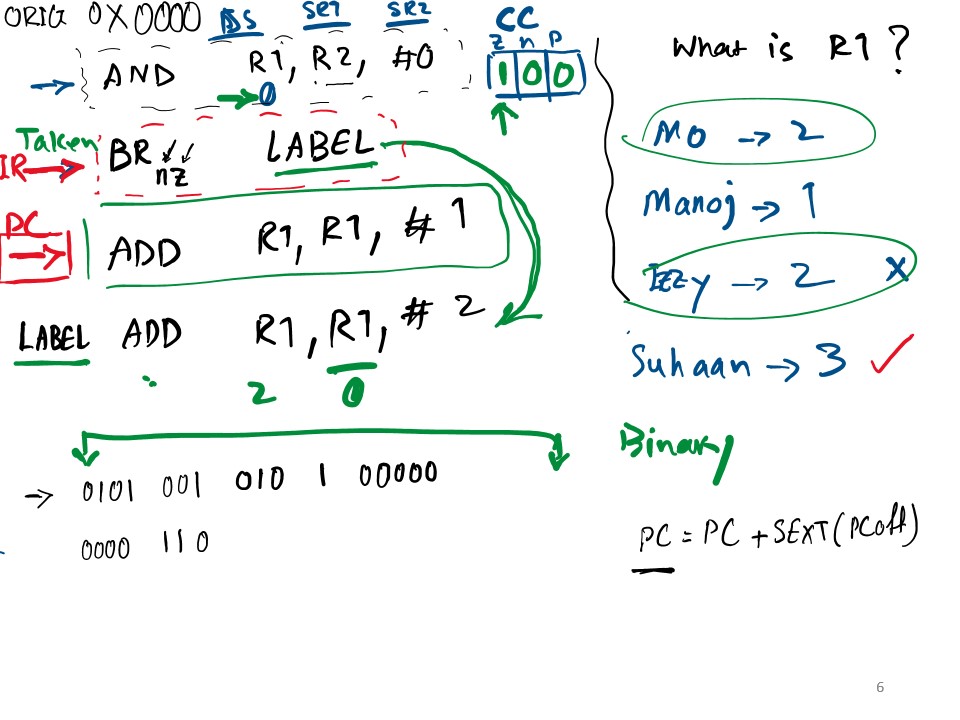 ORIG 0X0000 DS SR1 SR2 CC
z n p
AND R1, R2, #0 1 0 0
0
Taken
IR BR nz LABEL
PC
ADD R1, R1, # 1
LABEL ADD R1, R1, # 2
2 0
0101 001 010 1 00000
0000 110
What is R1?
Mo → 2
Manoj → 1
Izzy → 2 x
Suhaan → 3 ✓
Binary
PC = PC + SEXT(PCoff)
6